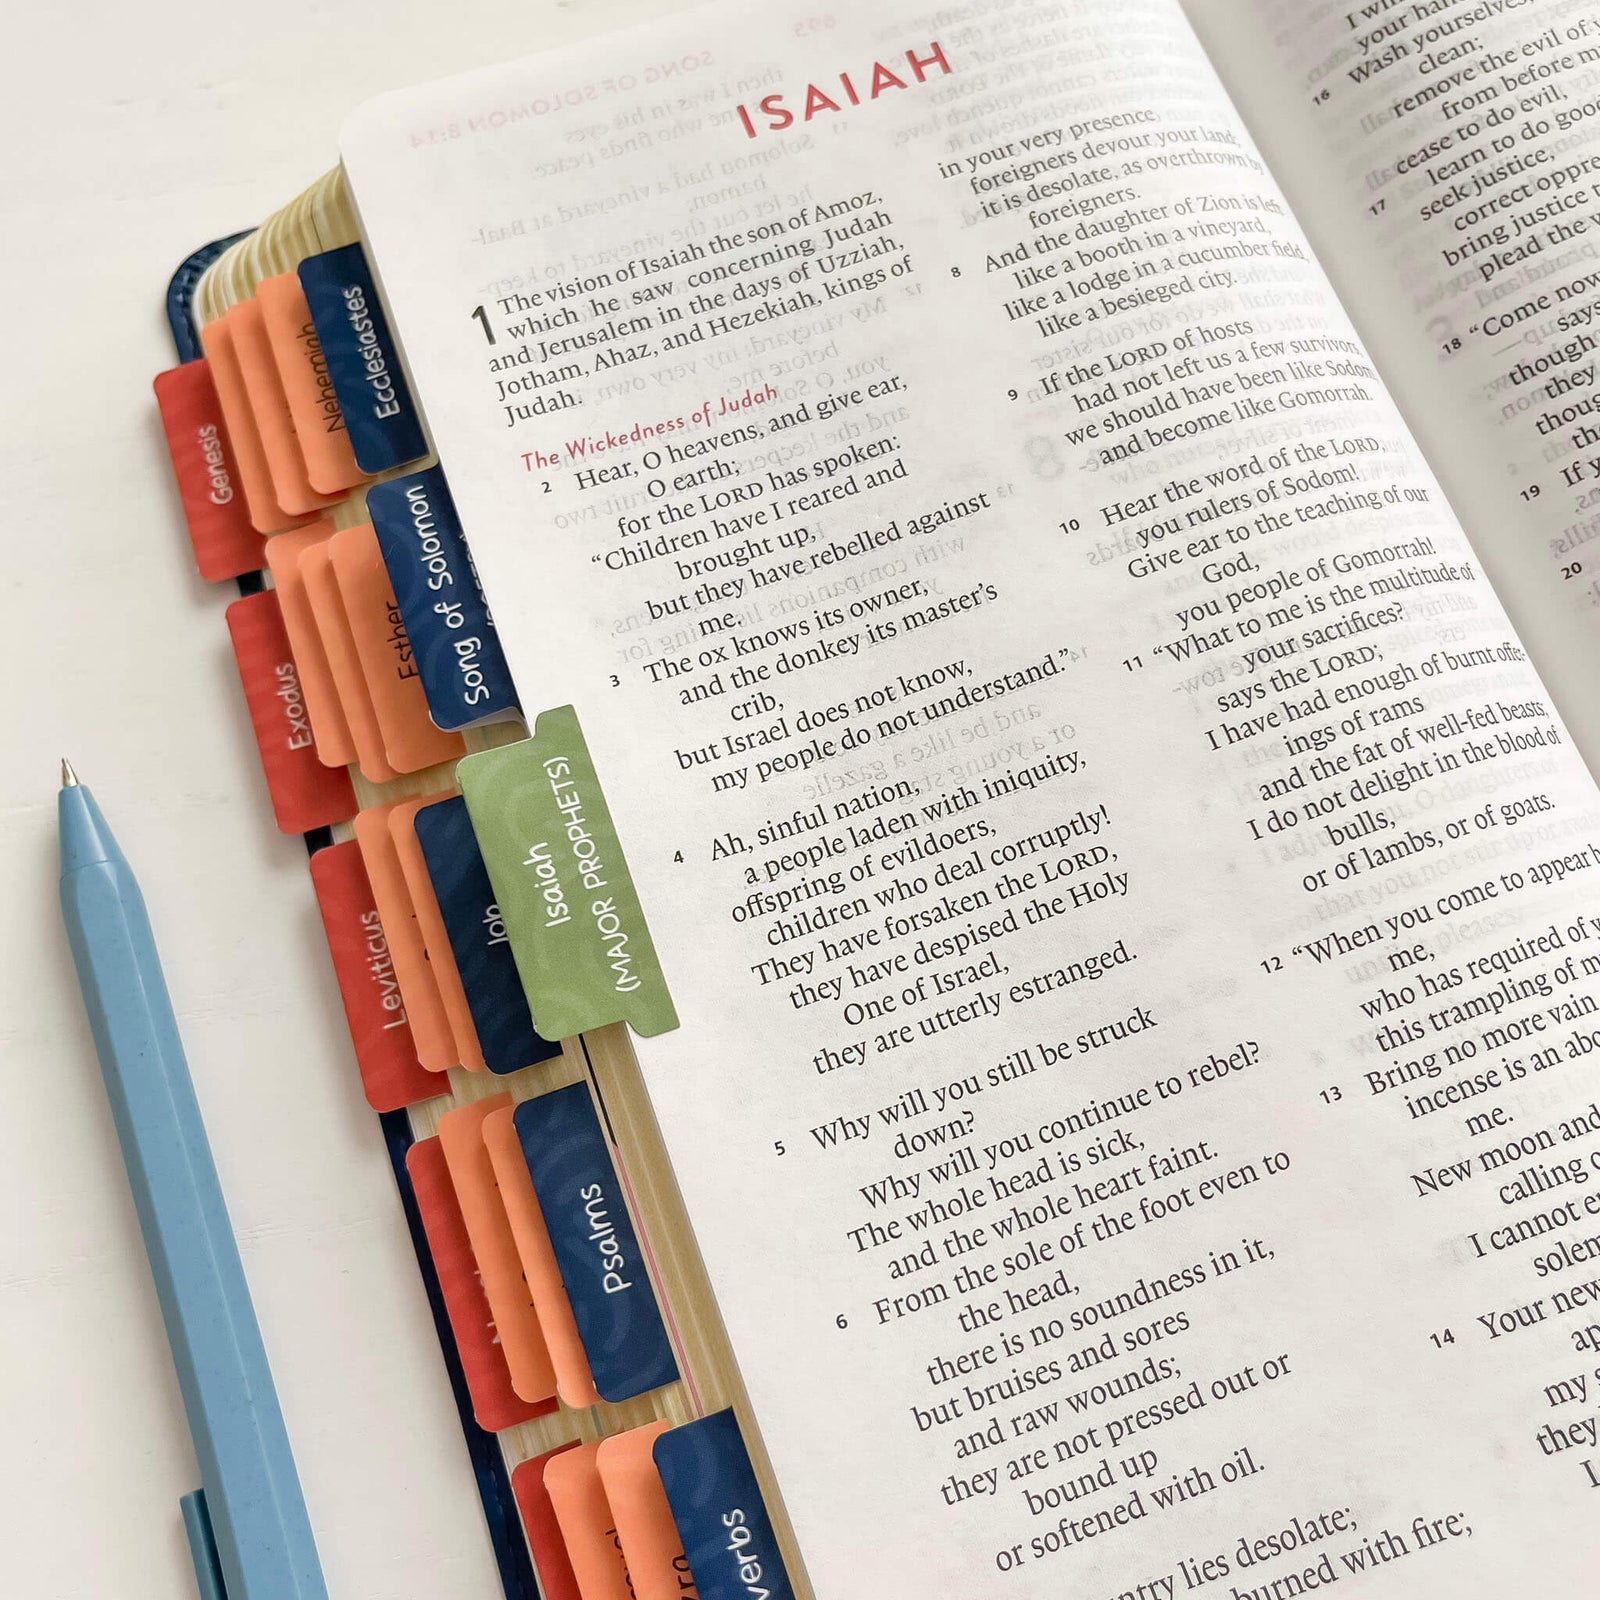 ISAIAH
1 The vision of Isaiah the son of Amoz,
which he saw concerning Judah
and Jerusalem in the days of Uzziah,
Jotham, Ahaz, and Hezekiah, kings of
Judah.
The Wickedness of Judah
2 Hear, O heavens, and give ear,
O earth;
for the LORD has spoken:
“Children have I reared and
brought up,
but they have rebelled against
me.
3 The ox knows its owner,
and the donkey its master’s
crib,
but Israel does not know,
my people do not understand.”
4 Ah, sinful nation,
a people laden with iniquity,
offspring of evildoers,
children who deal corruptly!
They have forsaken the LORD,
they have despised the Holy
One of Israel,
they are utterly estranged.
5 Why will you still be struck
down?
Why will you continue to rebel?
The whole head is sick,
and the whole heart faint.
6 From the sole of the foot even to
the head,
there is no soundness in it,
but bruises and sores
and raw wounds;
they are not pressed out or
bound up
or softened with oil.
lies desolate;
burned with fire;
in your very presence
foreigners devour your land;
it is desolate, as overthrown by
foreigners.
8 And the daughter of Zion is left
like a booth in a vineyard,
like a lodge in a cucumber field,
like a besieged city.
9 If the LORD of hosts
had not left us a few survivors,
we should have been like Sodom,
and become like Gomorrah.
10 Hear the word of the LORD,
you rulers of Sodom!
Give ear to the teaching of our
God,
you people of Gomorrah!
11 “What to me is the multitude of
your sacrifices?
says the LORD;
I have had enough of burnt offer-
ings of rams
and the fat of well-fed beasts;
I do not delight in the blood of
bulls,
or of lambs, or of goats.
12 “When you come to appear
me,
who has required of
this trampling of
13 Bring no more vain
incense is an
me.
New moon and
calling
I cannot
14 Your new
my
they
I
your
16 Wash yourselves,
clean;
remove the evil of
from before
cease to do evil,
17 learn to do good
seek justice,
correct
bring justice
plead the
18 “Come now
says
though
they
19 If
20
Genesis
Exodus
Leviticus
Nehemiah
Esther
Job
Psalms
Ecclesiastes
Song of Solomon
Isaiah
(MAJOR PROPHETS)